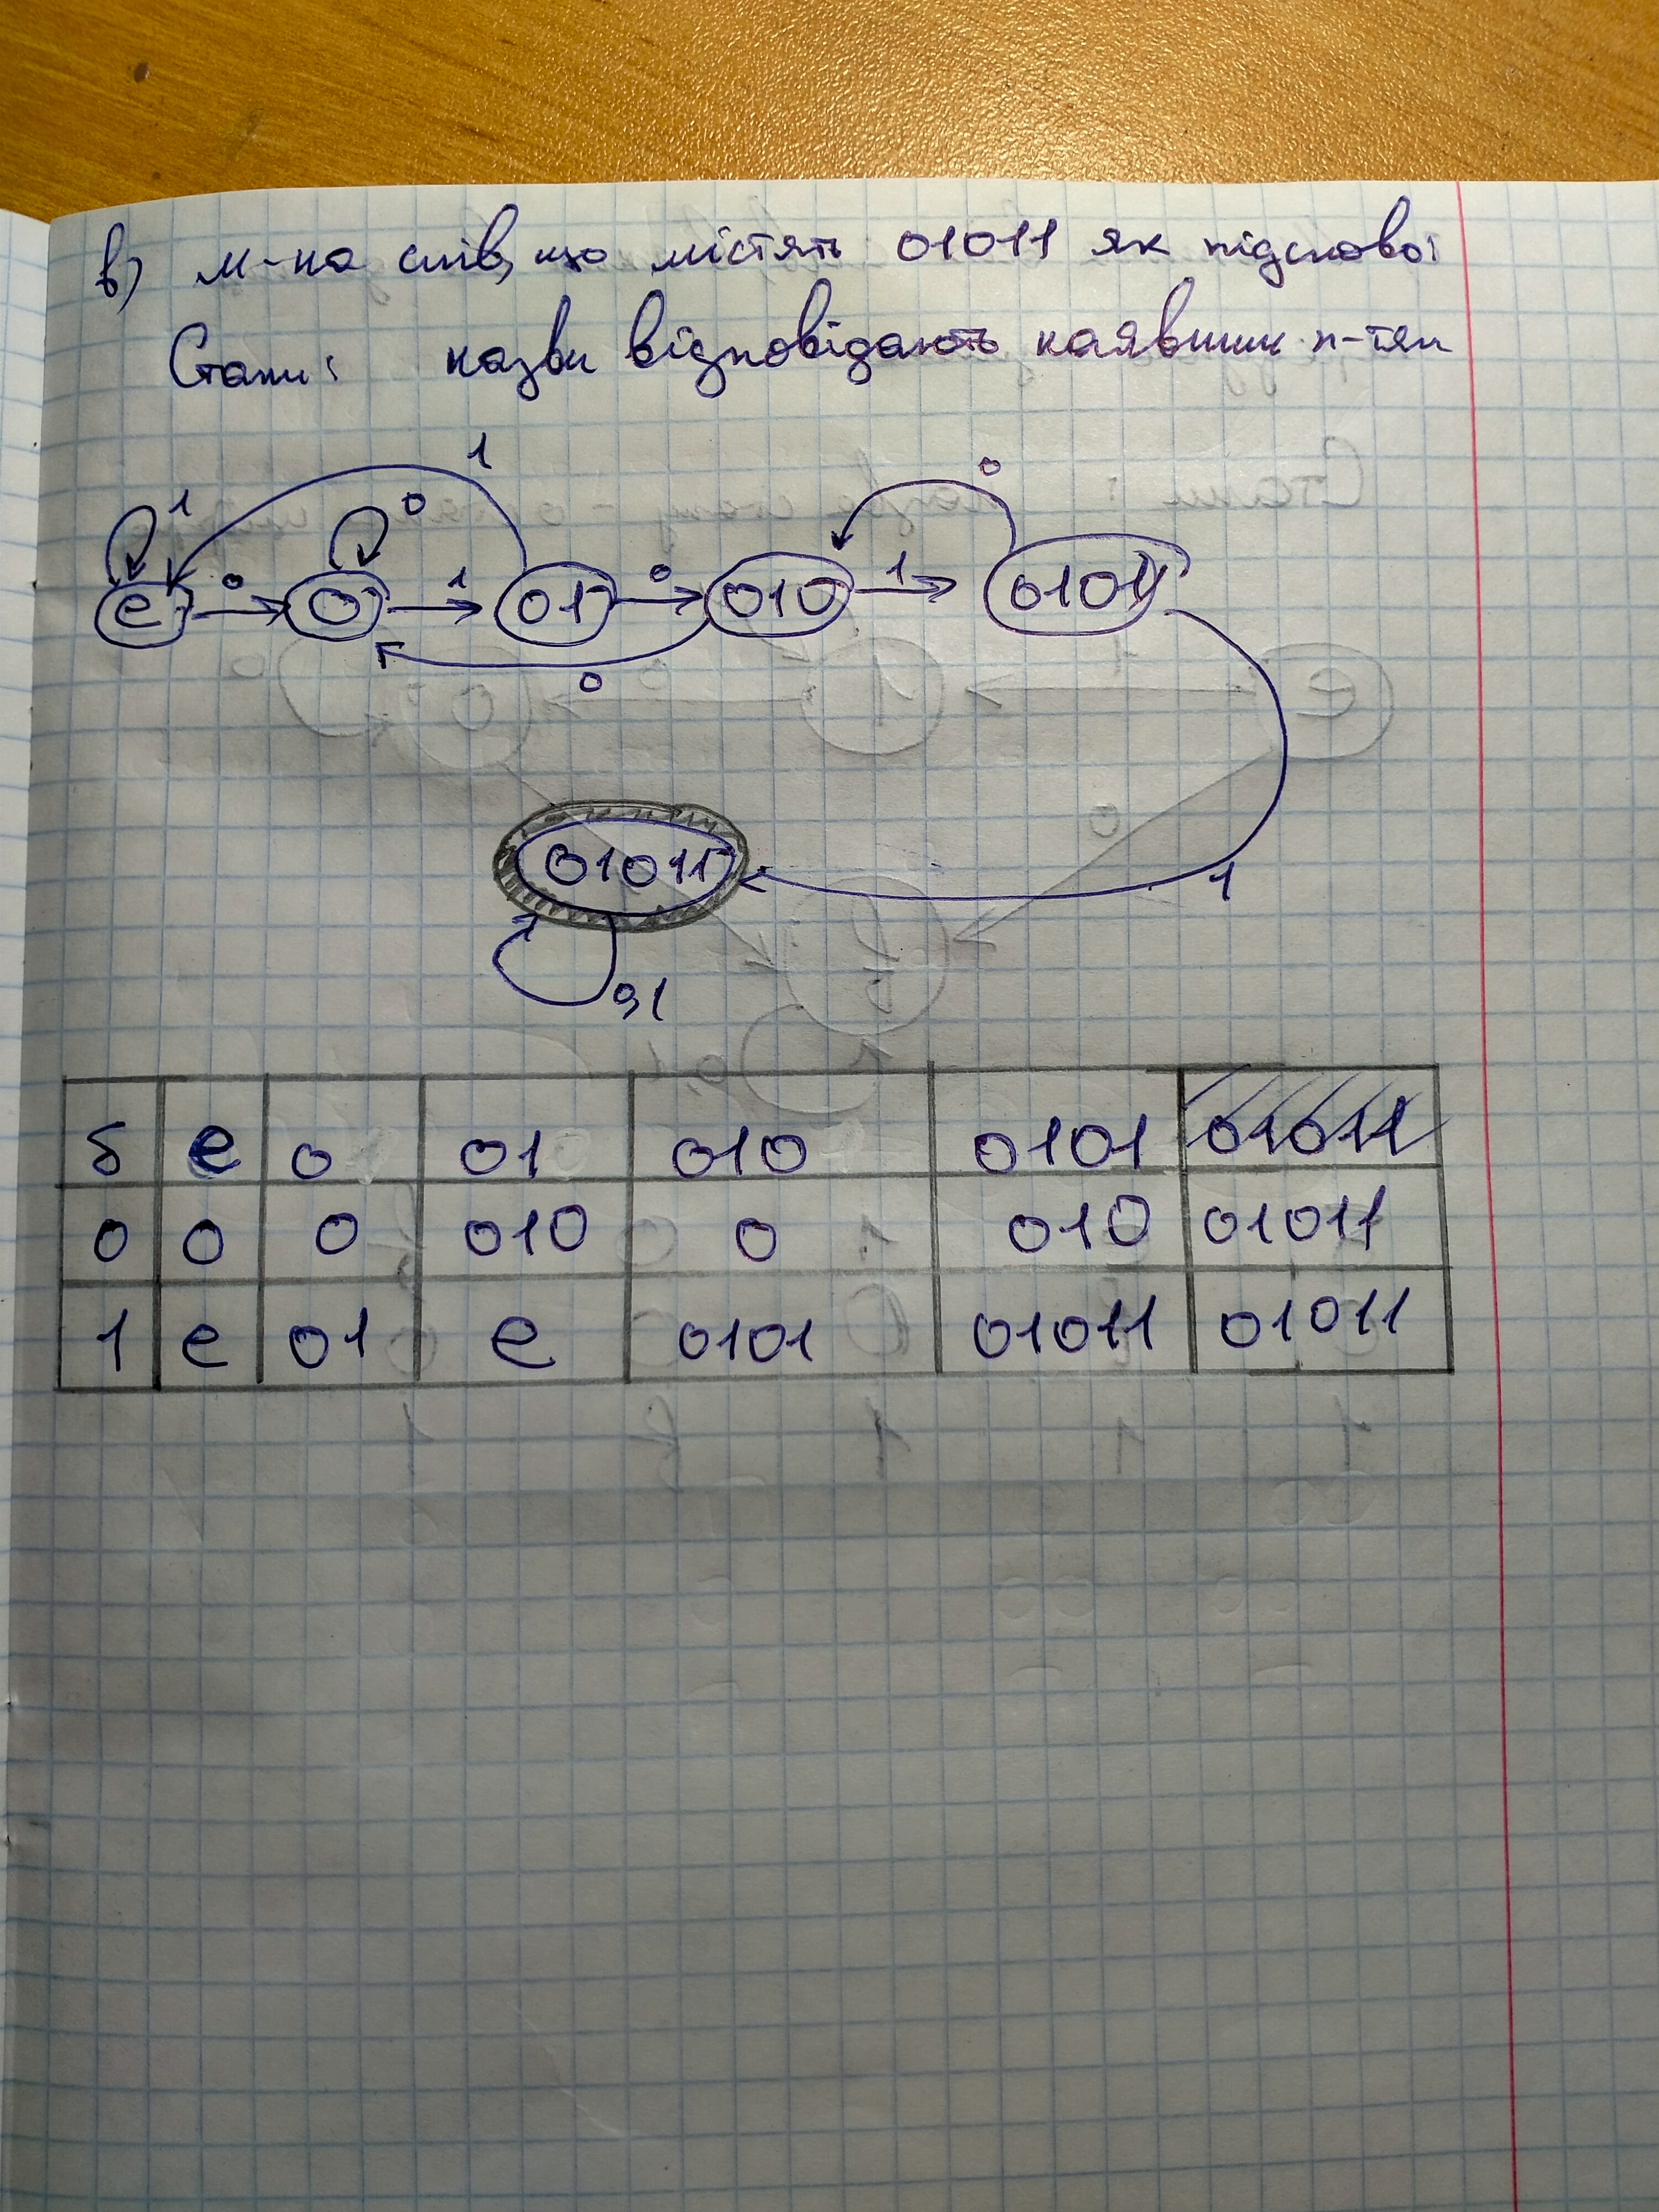 в) м-на слів, що містять 01011 як підслово:
Стани: назви відповідають наявним п-тям
1
1 0 0
e 0 0 1 01 0 010 1 0101
0
01011 1
0,1
δ e 0 01 010 0101 01011
0 0 0 010 0 010 01011
1 e 01 e 0101 01011 01011